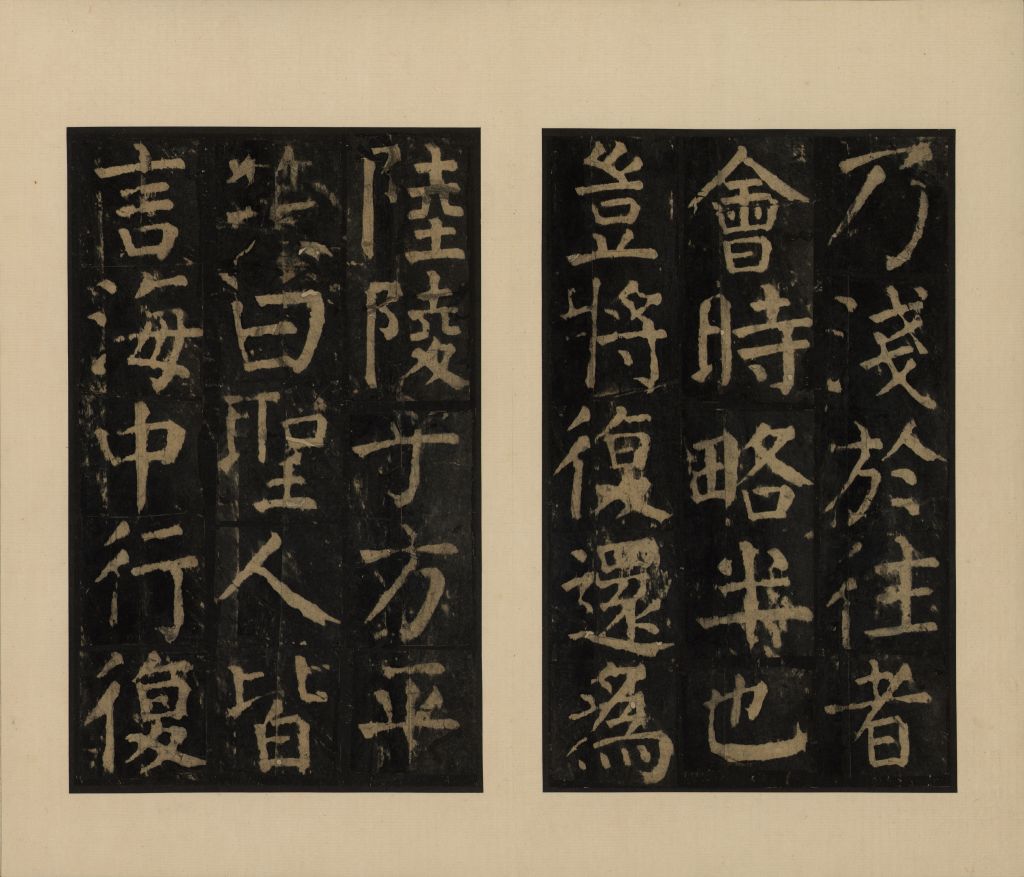 乃淺於往者
會時略半也
豈將復還為
陸陵乎方平
笑曰聖人皆
言海中行復